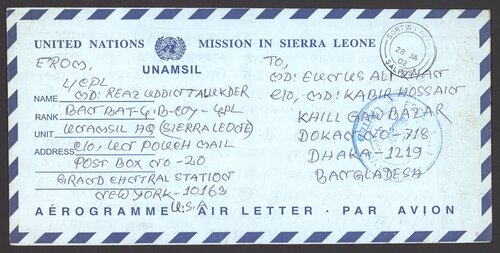 UNITED NATIONS MISSION IN SIERRA LEONE
UNAMSIL
FROM,
L/CPL
NAME MD: REAZ UDDIN TALUKDER
RANK BAN BAT-4, B-COY-4PL
UNIT UNAMSIL HQ (SIERRA LEONE)
ADDRESS C/O, UN POUCH MAIL
POST BOX NO-20
GRAND CENTRAL STATION
NEW YORK-10163
U.S.A
TO,
MD: ALI KHAN
C/O, MD: KABIR HOSSAIN
KHILL GAW BAZAR
DOKAN NO-718
DHAKA-1219
BANGLADESH
28 JA
02
AÉROGRAMME AIR LETTER · PAR AVION